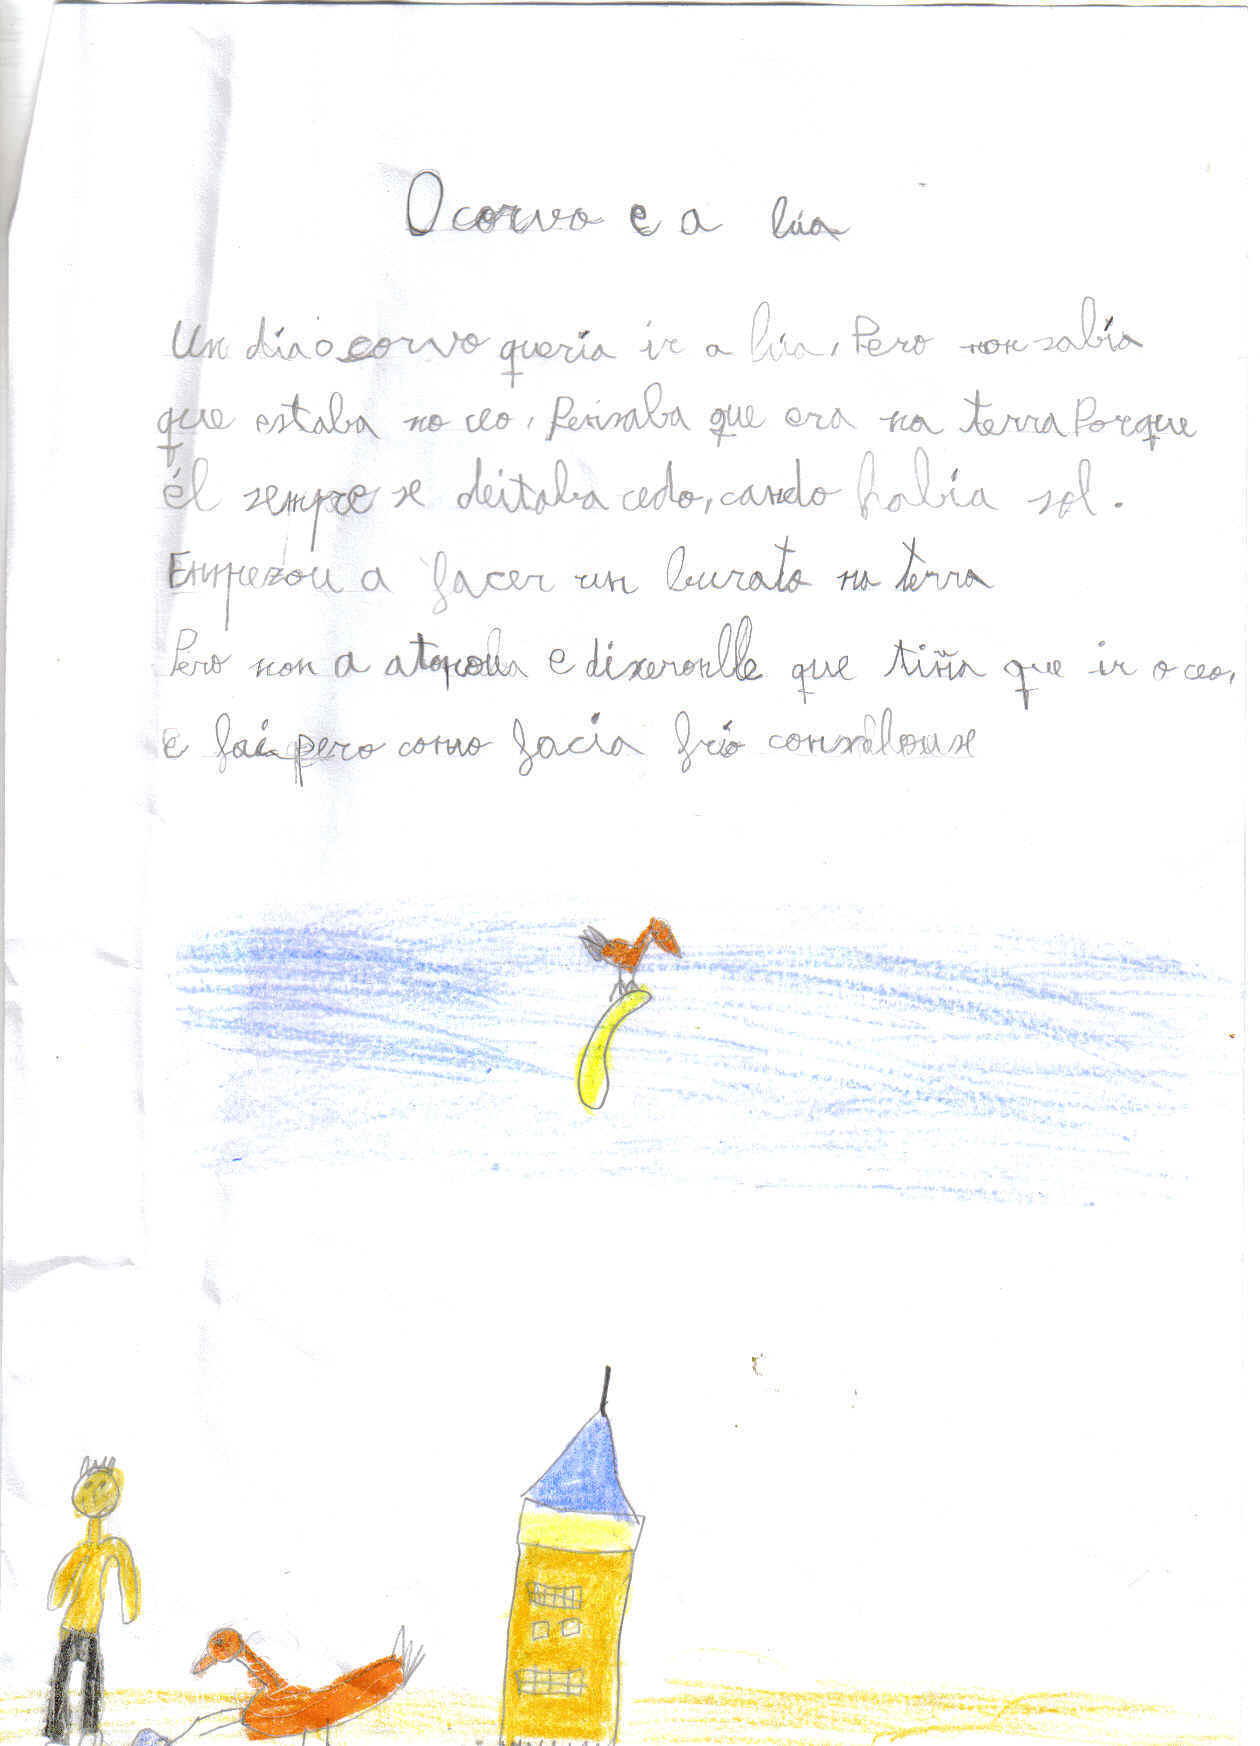 O corvo e a lúa
Un día o corvo quería ir a lúa, Pero non sabía
que estaba no ceo, Pensaba que era na terra Porque
él sempre se deitaba cedo, cando había sol.
Empezou a facer un burato na terra
Pero non a atopou e dixeronlle que tiña que ir o ceo,
e foi pero como facía frío conxelouse